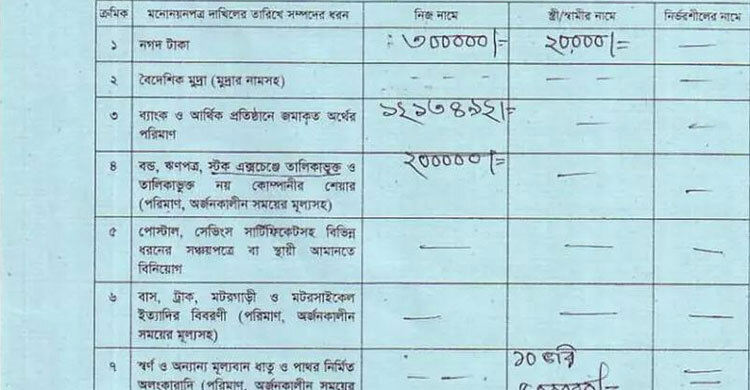 ক্রমিক মনোনয়নপত্র দাখিলের তারিখে সম্পদের ধরন নিজ নামে স্ত্রী/স্বামীর নামে নির্ভরশীলের নামে
১ নগদ টাকা ৩০০০০০/= ২০,০০০/= —
২ বৈদেশিক মুদ্রা (মুদ্রার নামসহ) - - - - - -
৩ ব্যাংক ও আর্থিক প্রতিষ্ঠানে জমাকৃত অর্থের — —
পরিমাণ
৪ বন্ড, ঋণপত্র, স্টক এক্সচেঞ্জে তালিকাভুক্ত ও ২০০০০০/= — —
তালিকাভুক্ত নয় কোম্পানীর শেয়ার
(পরিমাণ, অর্জনকালীন সময়ের মূল্যসহ)
৫ পোস্টাল, সেভিংস সার্টিফিকেটসহ বিভিন্ন — — —
ধরনের সঞ্চয়পত্রে বা স্থায়ী আমানতে
বিনিয়োগ
৬ বাস, ট্রাক, মটরগাড়ী ও মটরসাইকেল — — —
ইত্যাদির বিবরণী (পরিমাণ, অর্জনকালীন
সময়ের মূল্যসহ)
৭ স্বর্ণ ও অন্যান্য মূল্যবান ধাতু ও পাথর নির্মিত - - ১০ ভরি —
অলংকারাদি (পরিমাণ, অর্জনকালীন সময়ের